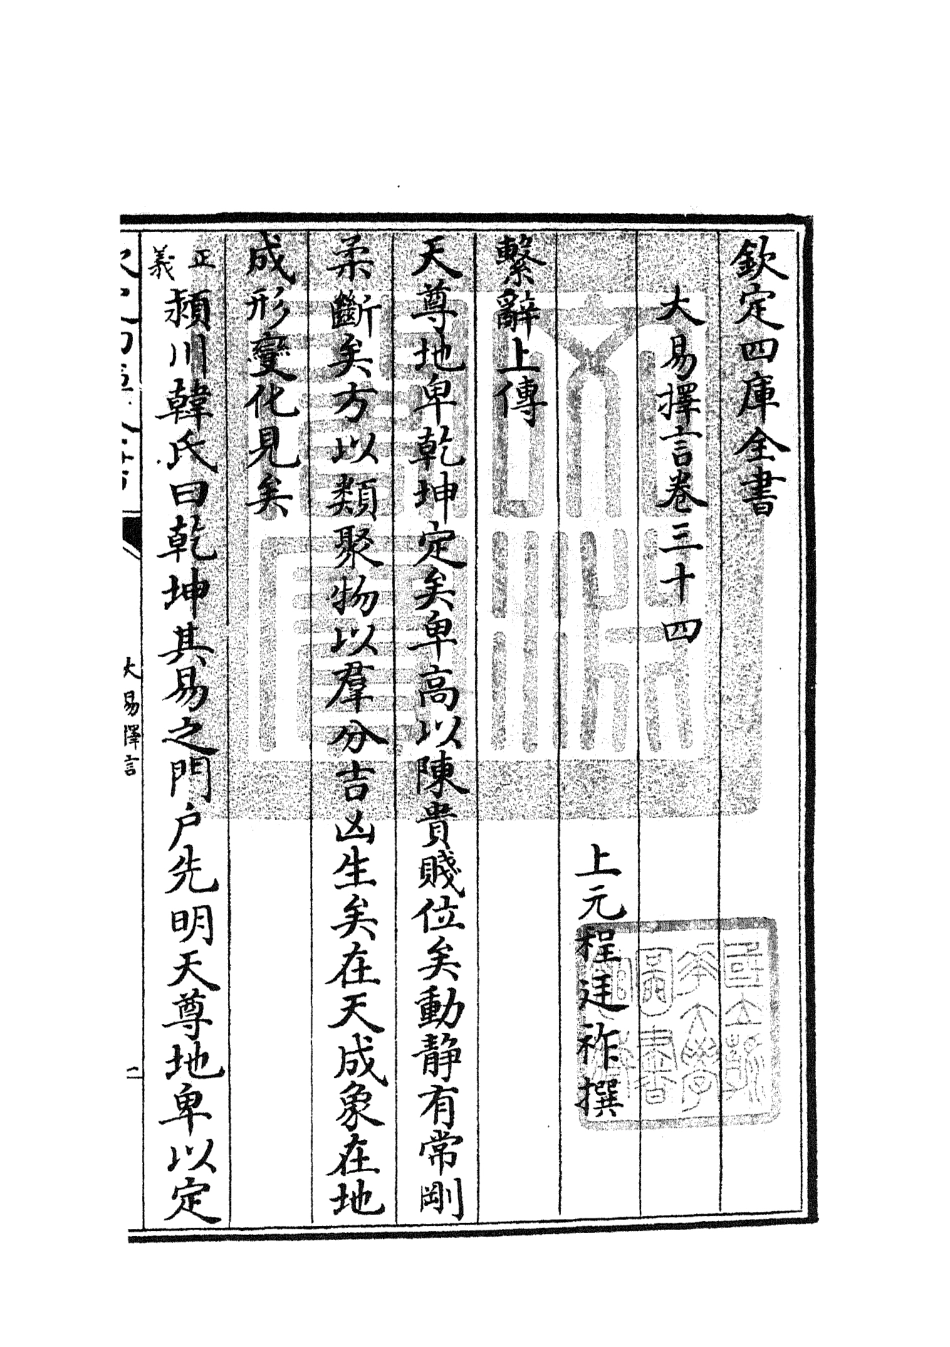 欽定四庫全書
大易擇言卷三十四
上元程廷祚撰
繫辭上傳
天尊地卑乾坤定矣卑高以陳貴賤位矣動靜有常剛
柔斷矣方以類聚物以羣分吉凶生矣在天成象在地
成形變化見矣
正義潁川韓氏曰乾坤其易之門户先明天尊地卑以定
大易擇言